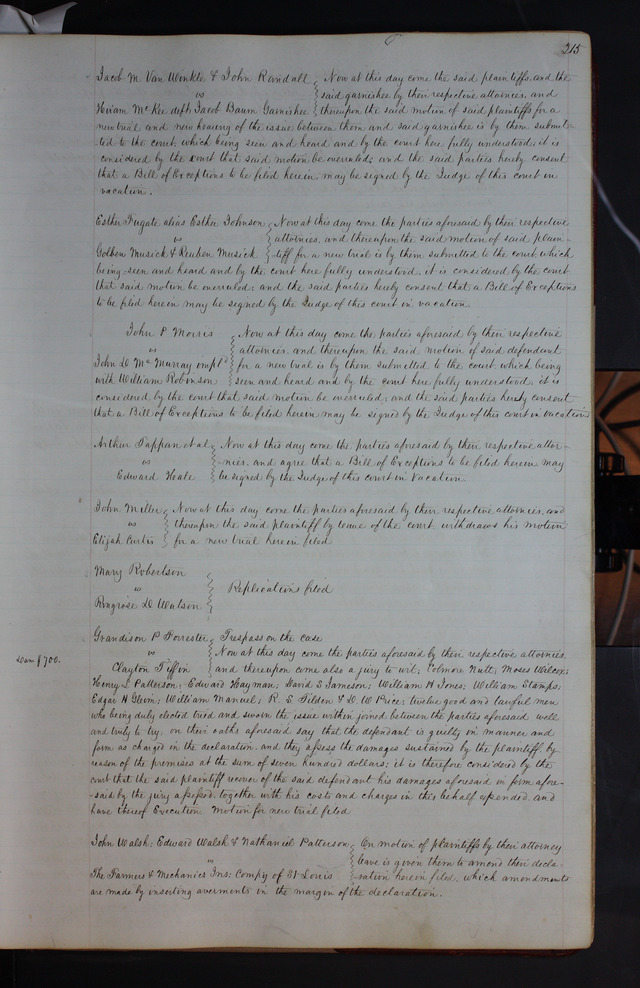 215
Jacob M. Van Winkle & John Randall Now at this day come the said plaintiffs and the
vs said garnishee by their respective attornies, and
Hiram McKee deft Jacob Baum Garnishee thereupon the said motion of said plaintiffs for a
new trial and new hearing of the issue between them and said garnishee is by them submit-
ted to the court, which being seen and heard and by the court here fully understood, it is
considered by the court that said motion be overruled; and the said parties hereby consent
that a Bill of Exceptions to be filed herein, may be signed by the Judge of this court in
vacation.
Esther Fugate alias Esther Johnson Now at this day come the parties aforesaid by their respective
vs attornies, and thereupon the said motion of said plain-
Musick & Reuben Musick tiff for a new trial is by them submitted to the court, which
being seen and heard and by the court here fully understood, it is considered by the court
that said motion be overruled; and the said parties hereby consent that a Bill of Exceptions
to be filed herein may be signed by the Judge of this court in vacation.
John P Morris Now at this day come the parties aforesaid by their respective
vs attornies, and thereupon the said motion of said defendant
John D McMurray impld for a new trial is by them submitted to the court, which being
with William Robinson seen and heard and by the court here fully understood, it is
considered by the court that said motion be overruled, and the said parties hereby consent
that a Bill of Exceptions to be filed herein may be signed by the Judge of this court in vacation
Arthur Tappan et al Now at this day come the parties aforesaid by their respective attor-
vs nies, and agree that a Bill of Exceptions to be filed herein may
Edward Heale be signed by the Judge of this court in vacation.
John Miller Now at this day come the parties aforesaid by their respective attornies, and
vs thereupon the said plaintiff by leave of the court withdraws his motion
Elijah Curtis for a new trial herein filed
Mary Robertson
vs Replication filed
Ringrose D Watson
Grandison P Forrester Trespass on the case
Dam $700. vs Now at this day come the parties aforesaid by their respective attornies,
Clayton Tiffin and thereupon come also a jury to wit; Colmore Nutt; Moses Wilcox;
Henry L Patterson; Edward Hayman; David S Jameson; William H Jones; William Stamps;
Edgar H Glenn; William Manuel; R. S Tilden & D. W Price; twelve good and lawful men
who being duly elected tried and sworn the issue within joined between the parties aforesaid well
and truly to try, on their oaths aforesaid say that the defendant is guilty in manner and
form as charged in the declaration, and they assess the damages sustained by the plaintiff, by
reason of the premises at the sum of seven hundred dollars; it is therefore considered by the
court that the said plaintiff recover of the said defendant his damages aforesaid in form afore-
said by the jury assessed, together with his costs and charges in this behalf expended, and
have thereof Execution Motion for new trial filed
John Walsh; Edward Walsh & Nathaniel Patterson On motion of plaintiffs by their attorney
vs leave is given them to amend their decla-
The Farmers & Mechanics Ins: Compy of St Louis ration herein filed, which amendments
are made by inserting averments in the margin of the declaration.